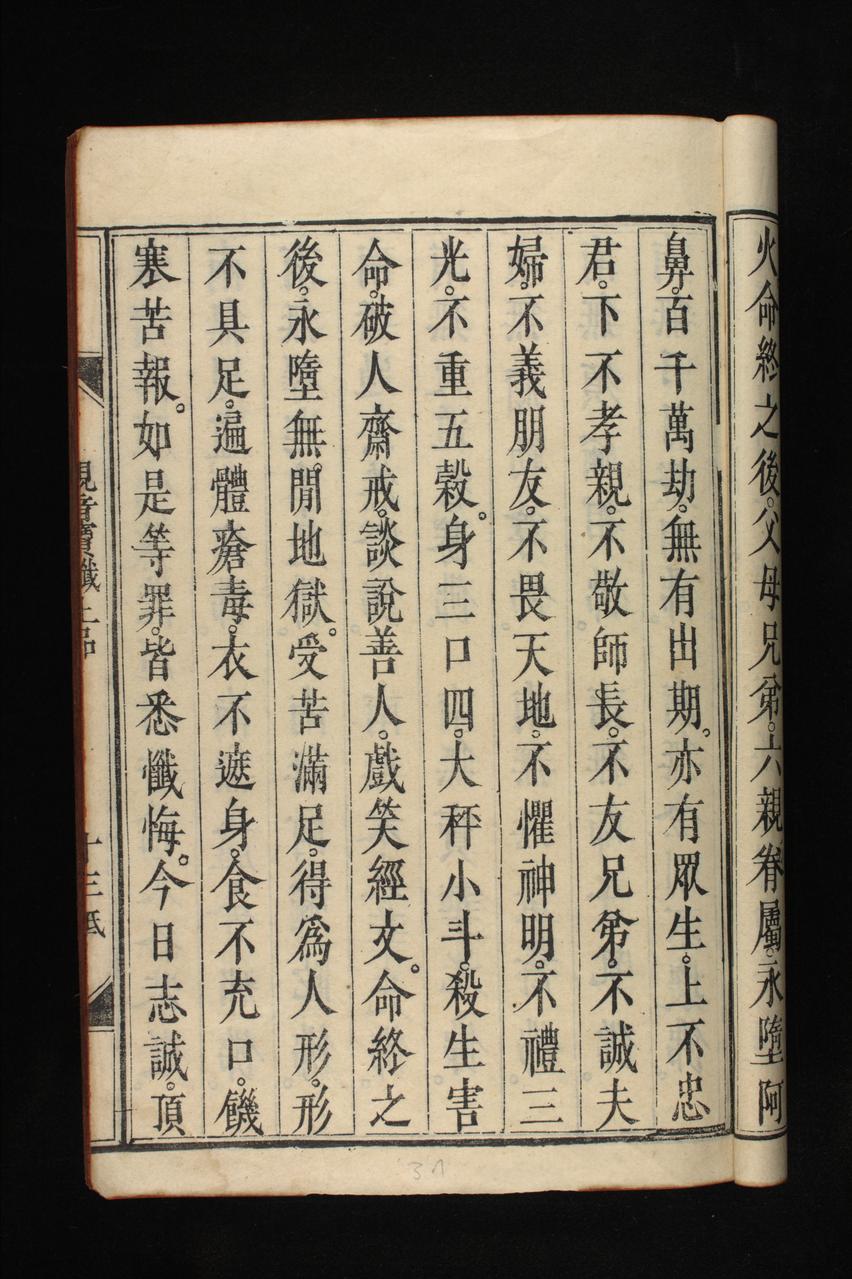 火命終之後。父母兄弟。六親眷屬。永墮阿
鼻。百千萬劫。無有出期。亦有眾生。上不忠
君。下不孝親。不敬師長。不友兄弟。不誠夫
婦。不義朋友。不畏天地。不懼神明。不禮三
光。不重五穀。身三口四。大秤小斗。殺生害
命。破人齋戒。談說善人。戲笑經文。命終之
後。永墮無。閒地獄。受苦滿足。得為人形。形
不具足。遍體瘡毒。衣不遮身。食不充口。饑
寒苦報。如是等罪。皆悉懺悔。今日志誠。頂
觀音寶懺上品
十三